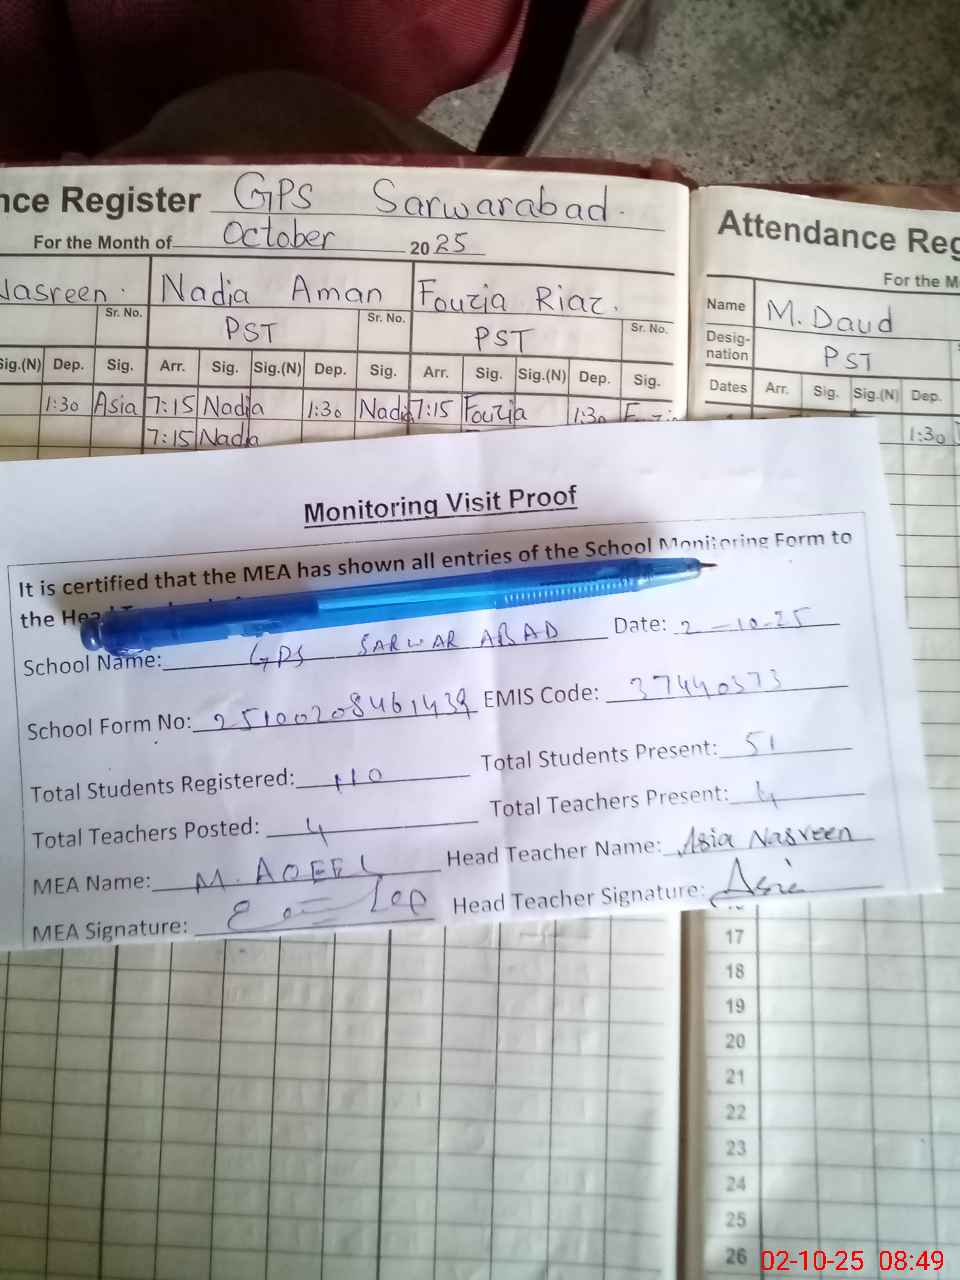 nce Register GPS Sarwarabad.
For the Month of October 2025
Nasreen. Nadia Aman Fouzia Riaz.
Sr. No. PST Sr. No. PST Sr. No.
Sig.(N) Dep. Sig. Arr. Sig. Sig.(N) Dep. Sig. Arr. Sig. Sig.(N) Dep. Sig.
1:30 Asia 7:15 Nadia 1:30 Nadia 7:15 Fouzia 1:30
7:15 Nadia
Attendance Reg
For the M
Name M. Daud
Desig-
nation PST
Dates Arr. Sig. Sig.(N) Dep.
1:30
Monitoring Visit Proof
It is certified that the MEA has shown all entries of the School Monitoring Form to
the
School Name: GPS SARWAR ABAD Date: 2-10-25
School Form No: 25100208461439 EMIS Code: 37440373
Total Students Registered: 110 Total Students Present: 51
Total Teachers Posted: 4 Total Teachers Present: 4
MEA Name: M. AQEEL Head Teacher Name: Asia Nasreen
MEA Signature: Head Teacher Signature: Asia
17
18
19
20
21
22
23
24
25
26
02-10-25 08:49